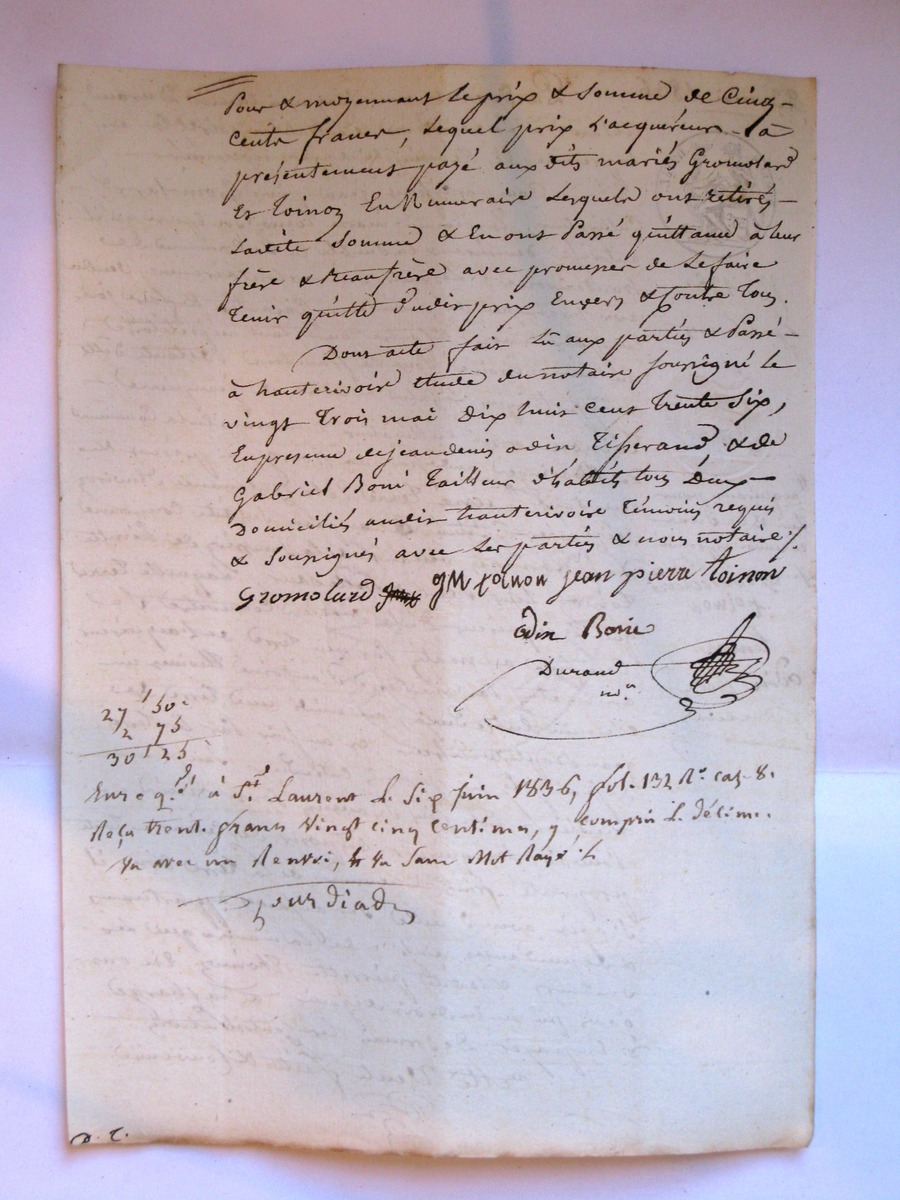 Pour & moyennant le prix & somme de Cinq-
cents francs, lequel prix l'acquéreur a
présentement payé aux dits mariés Gromolard
Et Toinon En Numeraire Lesquels ont retirés
Ladite Somme & En ont Passé quittance à leur
frère & Beaufrère avec promesse de le faire
Tenir quitte dudit prix Envers & Contre Tous.
Dont acte fait Lû aux parties & Passé
à hauterivoire étude du notaire soussigné le
vingt Trois mai dix huit cent trente Six,
En presence de jean denis odin Tisserand, & de
Gabriel Boni Tailleur d'habits tous Deux
Domiciliés audit hauterivoire Témoins requis
& Soussignés avec les parties & nous notaire ./.
Gromolard gM toinon jean pierre toinon
Odin Bonie
Durand
nre
27 50
2 75
30 25
Enregé à St Laurent Le Six juin 1836, fol. 132 Ro cas. 8.
Reçu trente francs vingt cinq Centimes, y compris le décime.
Vu avec un Renvoi, & Vu Sans Mot Rayé ./.
D. T.